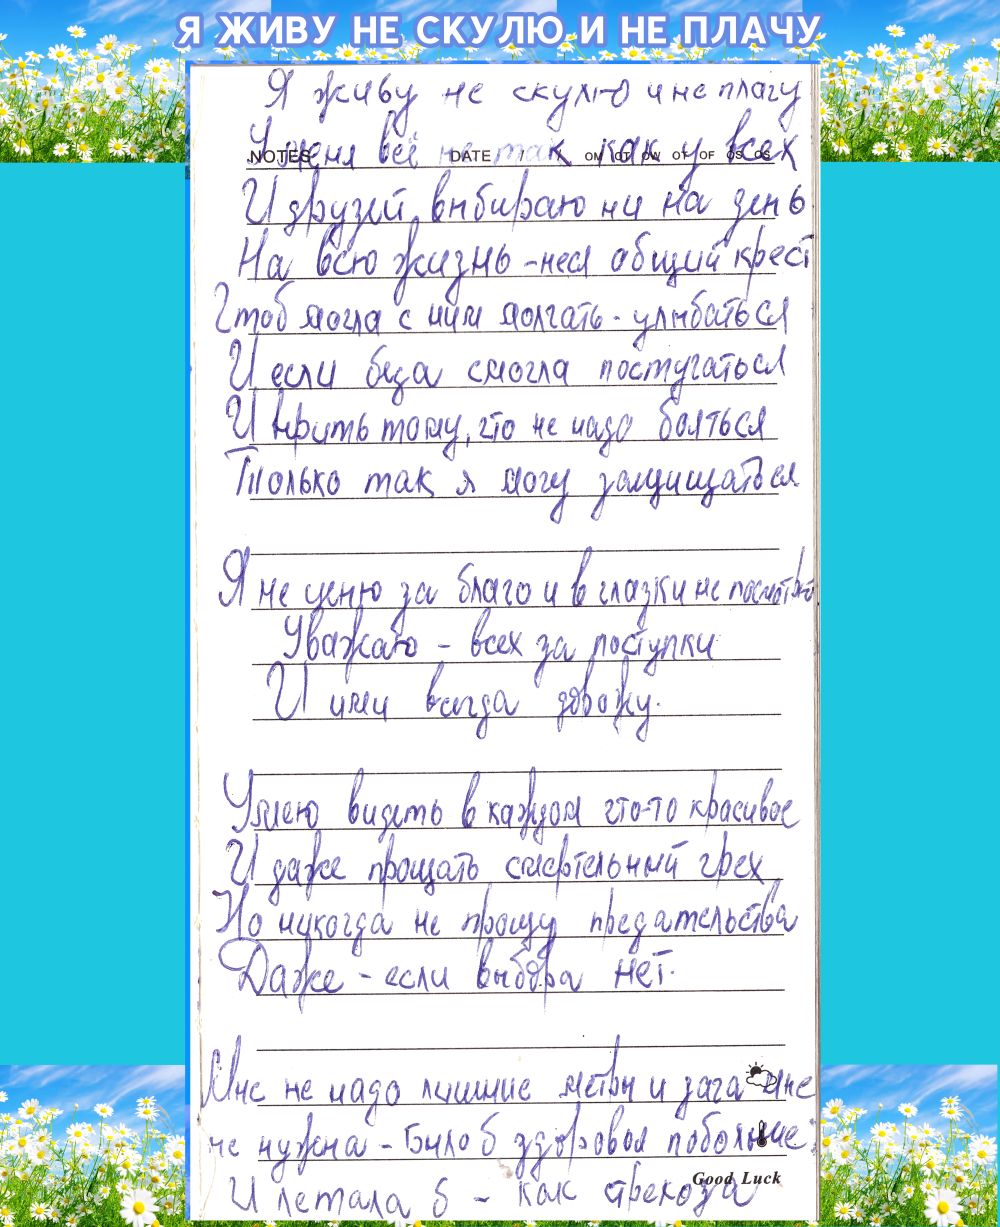 Я ЖИВУ НЕ СКУЛЮ И НЕ ПЛАЧУ
Я живу не скулю и не плачу
NOTES DATE
У меня всё не так как у всех
И друзей выбираю ни на день
На всю жизнь - неся общий крест
Чтоб могла с ним молчать - улыбаться
И если беда смогла постучаться
И крить тому, что не надо бояться
Только так я могу защищаться
Я не ценю за благо и в глазки не посмотрю
Уважаю - всех за поступки
И ими всегда дорожу.
Умею видеть в каждом что-то красивое
И даже прощать смертельный грех
Но никогда не прощу предательства
Даже - если выбора нет.
Мне не надо лишние метры и дача мне
не нужна - Было б здоровья побольше
Good Luck
И летала б - как стрекоза